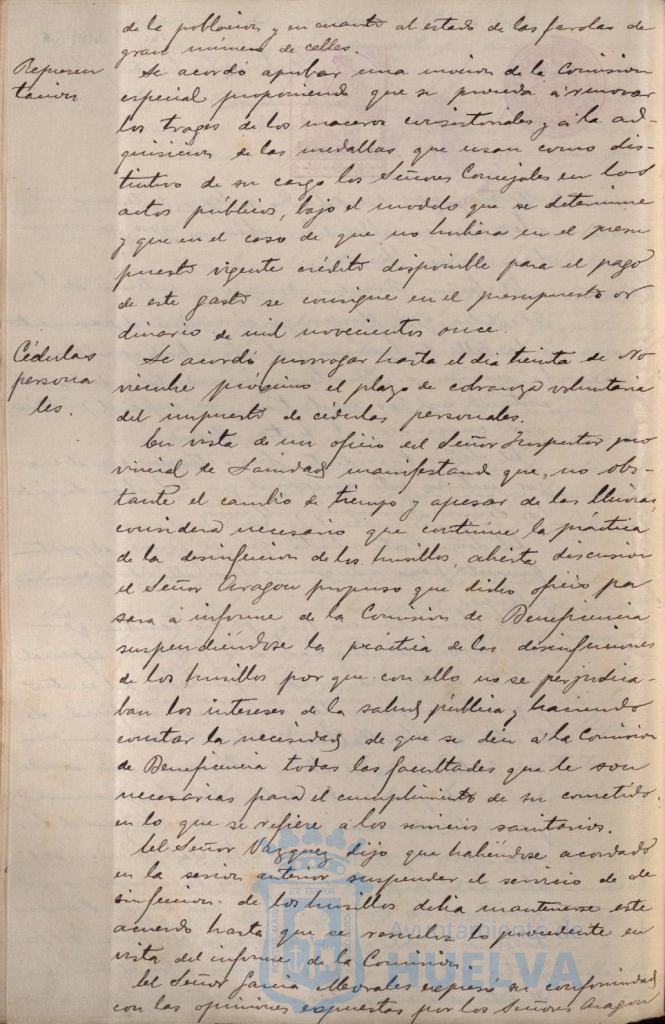 de la poblacion y en cuanto al estado de las farolas de
gran número de calles.
Represen
tacion
Se acordó aprobar una mocion de la Comision
especial proponiendo que se proceda á renovar
los trages de los maceros consistoriales y á la ad-
quisicion de las medallas que usan como dis-
tintivo de su cargo los Señores Concejales en los
actos públicos, bajo el modelo que se determine
y que en el caso de que no hubiera en el presu
puesto vigente crédito disponible para el pago
de este gasto se consigne en el presupuesto or
dinario de mil novecientos once.
Cédulas
persona
les.
Se acordó prorrogar hasta el dia treinta de No
viembre próximo el plazo de cobranza voluntaria
del impuesto de cédulas personales.
En vista de un oficio del Señor Inspector pro
vincial de Sanidad manifestando que, no obs-
tante el cambio de tiempo y apesar de las lluvias,
considera necesario que continúe la práctica
de la desinfeccion de los husillos, abierta discusion
el Señor Aragon propuso que dicho oficio pa
sara á informe de la Comision de Beneficencia
suspendiéndose la práctica de las desinfecciones
de los husillos por que con ello no se perjudica-
ban los intereses de la salud pública y haciendo
constar la necesidad de que se den á la Comision
de Beneficencia todas las facultades que le son
necesarias para el cumplimiento de su cometido.
en lo que se refiere a los servicios sanitarios.
El Señor Vazquez dijo que habiéndose acordado
en la sesion anterior suspender el servicio de de
sinfeccion de los husillos debia mantenerse este
acuerdo hasta que se resuelva lo procedente en
vista del informe de la Comision.
El Señor Garcia Morales expresó su conformidad
con las opiniones expuestas por los Señores Aragon
Ayuntamiento de
HUELVA